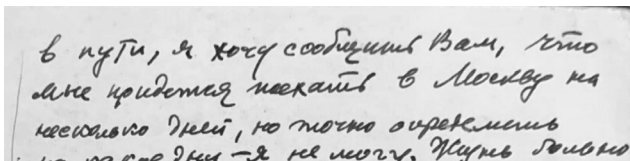 в пути, я хочу сообщить Вам, что
мне придется поехать в Москву на
несколько дней, но точно определить
на какие дни – я не могу. Жутко больно